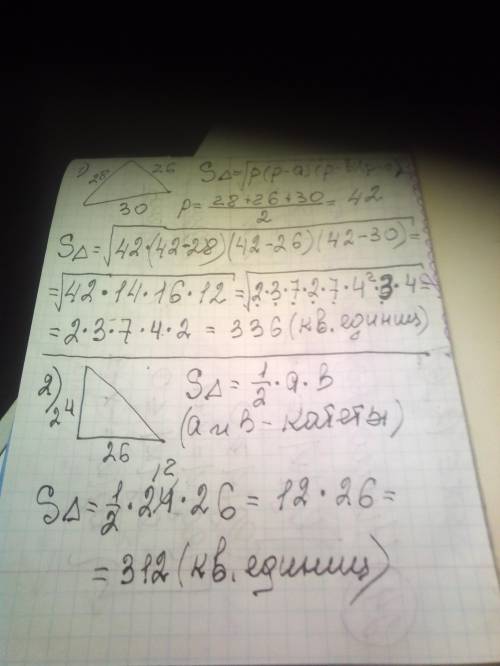 1) 28 26 30
S△=√p(p-a)(p-b)(p-c)
p= (28+26+30)/2 = 42
S△=√42·(42-28)(42-26)(42-30)=
=√42·14·16·12 =√2·3·7·2·7·4²·3·4=
=2·3·7·4·2 = 336 (кв.единиц)
2) 24 26
S△= 1/2·a·в
(a и в - катеты)
12
S△= 1/2·24·26 = 12·26=
=312 (кв.единиц)